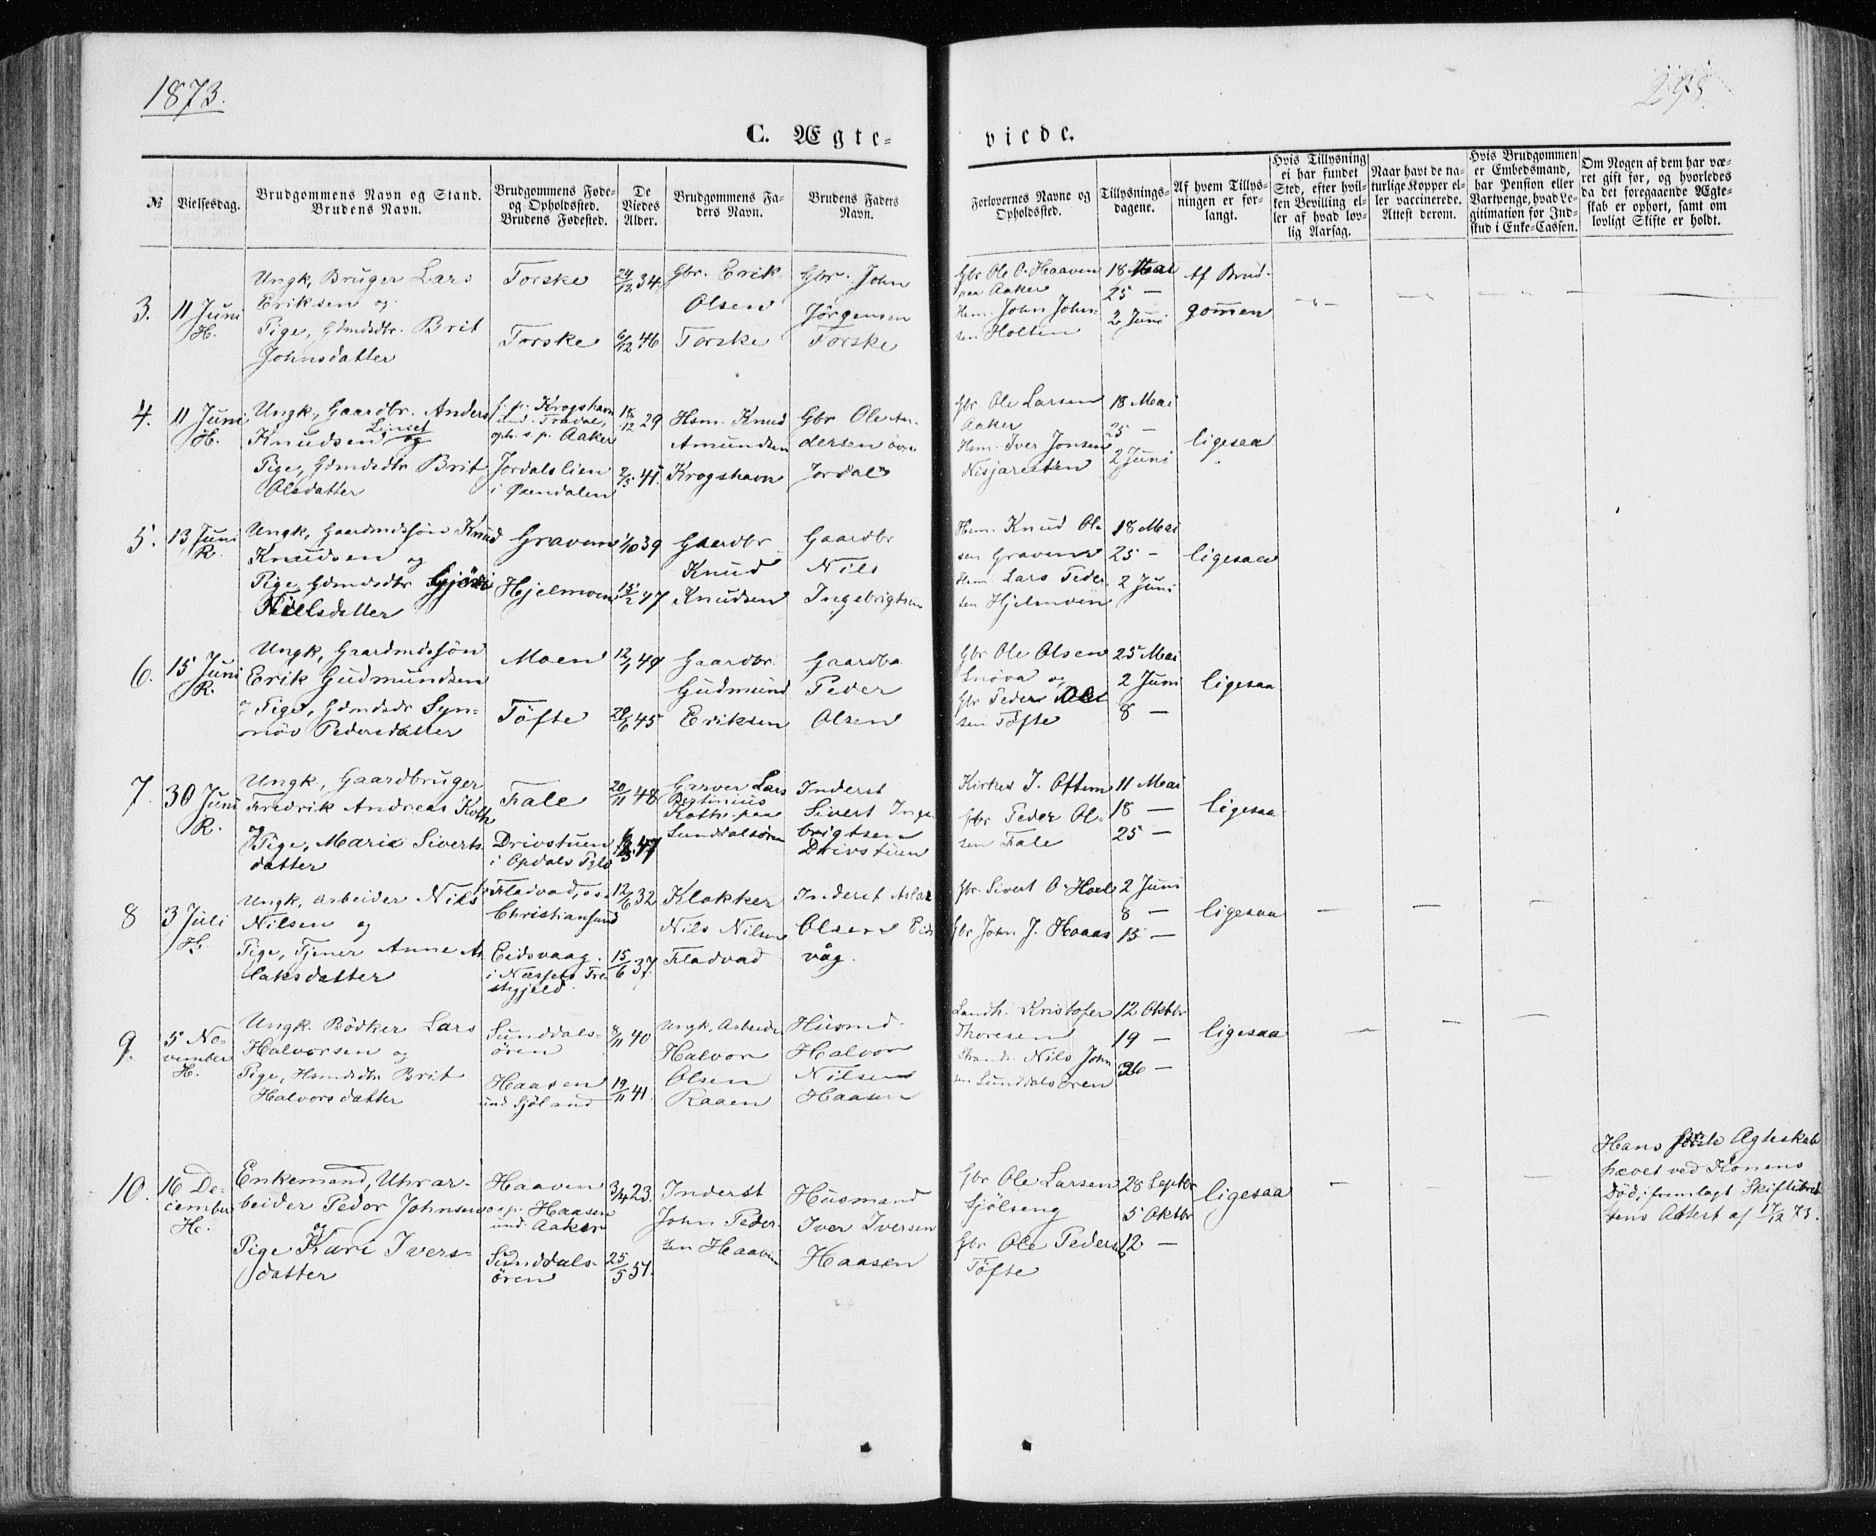 1873.
295
C. Ægte-
viede.
№
Vielsesdag.
Brudgommens Navn og Stand.
Brudens Navn.
Brudgommens Føde-
og Opholdssted.
Brudens Fødested.
De
Viedes
Alder.
Brudgommens Fa-
ders Navn.
Brudens Faders
Navn.
Forlovernes Navne og
Opholdssted.
Tillysnings-
dagene.
Af hvem Tillys-
ningen er for-
langt.
Hvis Tillysning
ei har fundet
Sted, efter hvil-
ken Bevilling el-
ler af hvad lov-
lig Aarsag.
Naar havt de na-
turlige Kopper el-
ler vaccinerede.
Attest derom.
Hvis Brudgommen
er Embedsmand,
har Pension eller
Vartpenge, hvad Le-
gitimation for Ind-
skud i Enke-Cassen.
Om Nogen af dem har væ-
ret gift for, og hvorledes
da det foregaaende Ægte-
skab er ophørt, samt om
lovligt Skifte er holdt.
3.
11 Juni
H.
Ungk, Bruger Lars
Eriksen og
Pige, Gdmdsdtr. Brit
Johnsdatter
Torske
Torske
24/12 34
6/12 46
Gbr. Erik
Olsen
Torske
Gbr. John
Jørgensen
Torske
Gbr Ole O. Haaven
paa Aaker
Hsm. John John-
sen Holten
18 Mai
25 —
2 Juni
Af Brud-
gommen
4.
11 Juni
H.
Ungk, Gaardbr. Anders
Knudsen og
Pige, Gdmdsdtr Brit
Olsdatter
f. p. Krogshavn
und. Fredal,
oph. s. p. Aaker
Jordalslien
i Øxendalen
18/12 29
2/5 41.
Hsm. Knud
Amundsen
Krogshavn
Gbr Ole An-
dersen øvre
Jordal
Gbr Ole Larsen
Aaker
Hsm. Iver Jonsen
18 Mai
25 —
2 Juni
ligesaa
5.
13 Juni
R.
Ungk, Gaardmdssøn Knud
Knudsen og
Pige, Gdmdsdtr Gjøri
Nielsdatter
Gravem
Hjelmoen
1/10 39
14/2 47
Gaardbr
Knud
Knudsen
Gaardbr
Nils
Ingebrigtsen
Hsm. Knud Ol-
sen Gravem
Hsm. Lars Peder-
sen Hjelmoen
18 Mai
25 —
2 Juni
ligesaa
6.
15 Juni
R.
Ungk, Gaardmdssøn
Erik Gudmundsen
og Pige, Gdmdsdr Syn-
nøv Pedersdatter
Moen
Tøfte
12/1 49
29/6 45
Gaardbr
Gudmund
Eriksen
Gaardbr
Peder
Olsen
Gbr Ole Olsen
Snøva og
Gbr Peder Ol-
sen Tøfte
25 Mai
2 Juni
8 —
ligesaa
7.
30 Juni
R.
Ungk, Gaardbruger
Fredrik Andreas Koth
og
Pige, Maria Siverts-
datter
Fale
Drivstuen
i Opdals Pgld
20/11 48
47
Garver Lars
Koth paa
Sunddalsøren
Inderst
Sivert Inge-
brigtsen
Drivstuen
Kirkes. I. Ottem
Gbr Peder Ol-
sen Fale
11 Mai
18 —
25 —
ligesaa
8
3 Juli
H.
Ungk, Arbeider Nils
Nilsen og
Pige, Tjener Anne As-
laksdatter
Fladvad, o. s.
Christiansund
Eidsvaag
i Næssets Præ-
stegjeld
12/6 32
15/6 37.
Klokker
Nils Nilsen
Fladvad
Inderst Aslak
Olsen Eids-
våg.
Gbr Sivert O. Hoel
Gbr John J. Hoaas
2 Juni
8 —
15 —
ligesaa
9.
5 No-
vember
H.
Ungk. Bødker Lars
Halvorsen og
Pige, Hsmdsdtr. Brit
Halvorsdatter
Sunddals-
ören
Haasen
und Sjøland
8/11 40
19/11 41.
Ungk. Arbeider
Halvor
Olsen
Raaen
Husmd.
Halvor
Nilsen
Haasen
Landh. Kristofer
Thoresen
Strands. Nils John
sen Sunddalsören
12 Oktbr
19 —
26 —
ligesaa
10.
16 De-
cember
H.
Enkemand, Uhrar-
beider Peder Johnsen
og
Pige Kari Ivers-
datter
Haaven
o s. p. Haasen
und. Aaker
Sunddals-
ören
3/4 23.
25/5 51.
Inderst
John Peder-
sen Haaven
Husmand
Iver Iversen
Haasen
Gbr Ole Larsen
Sjölseng
Gbr Ole Peders
Töfte
28 Septbr
5 Oktbr
12 —
ligesaa
Hans første Ægteskab
hævet ved Konens
Död, fremlagt Skifteret-
tens Attest af 17/12 73.